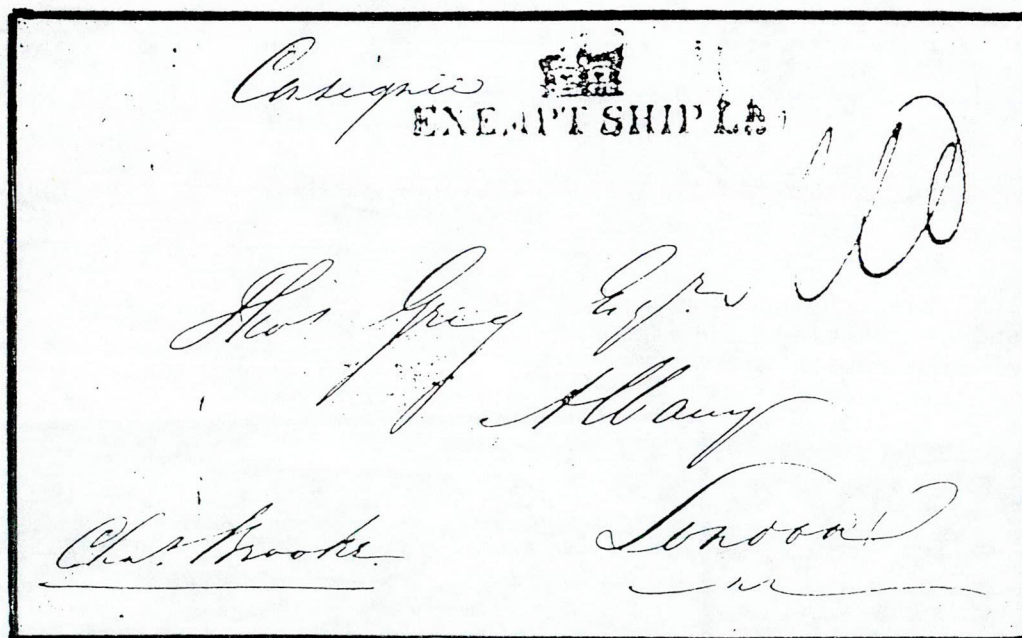 Consignee
EXEMPT SHIP LR
10
Thos Greg Esqr
Albany
London
Chas. Brooke